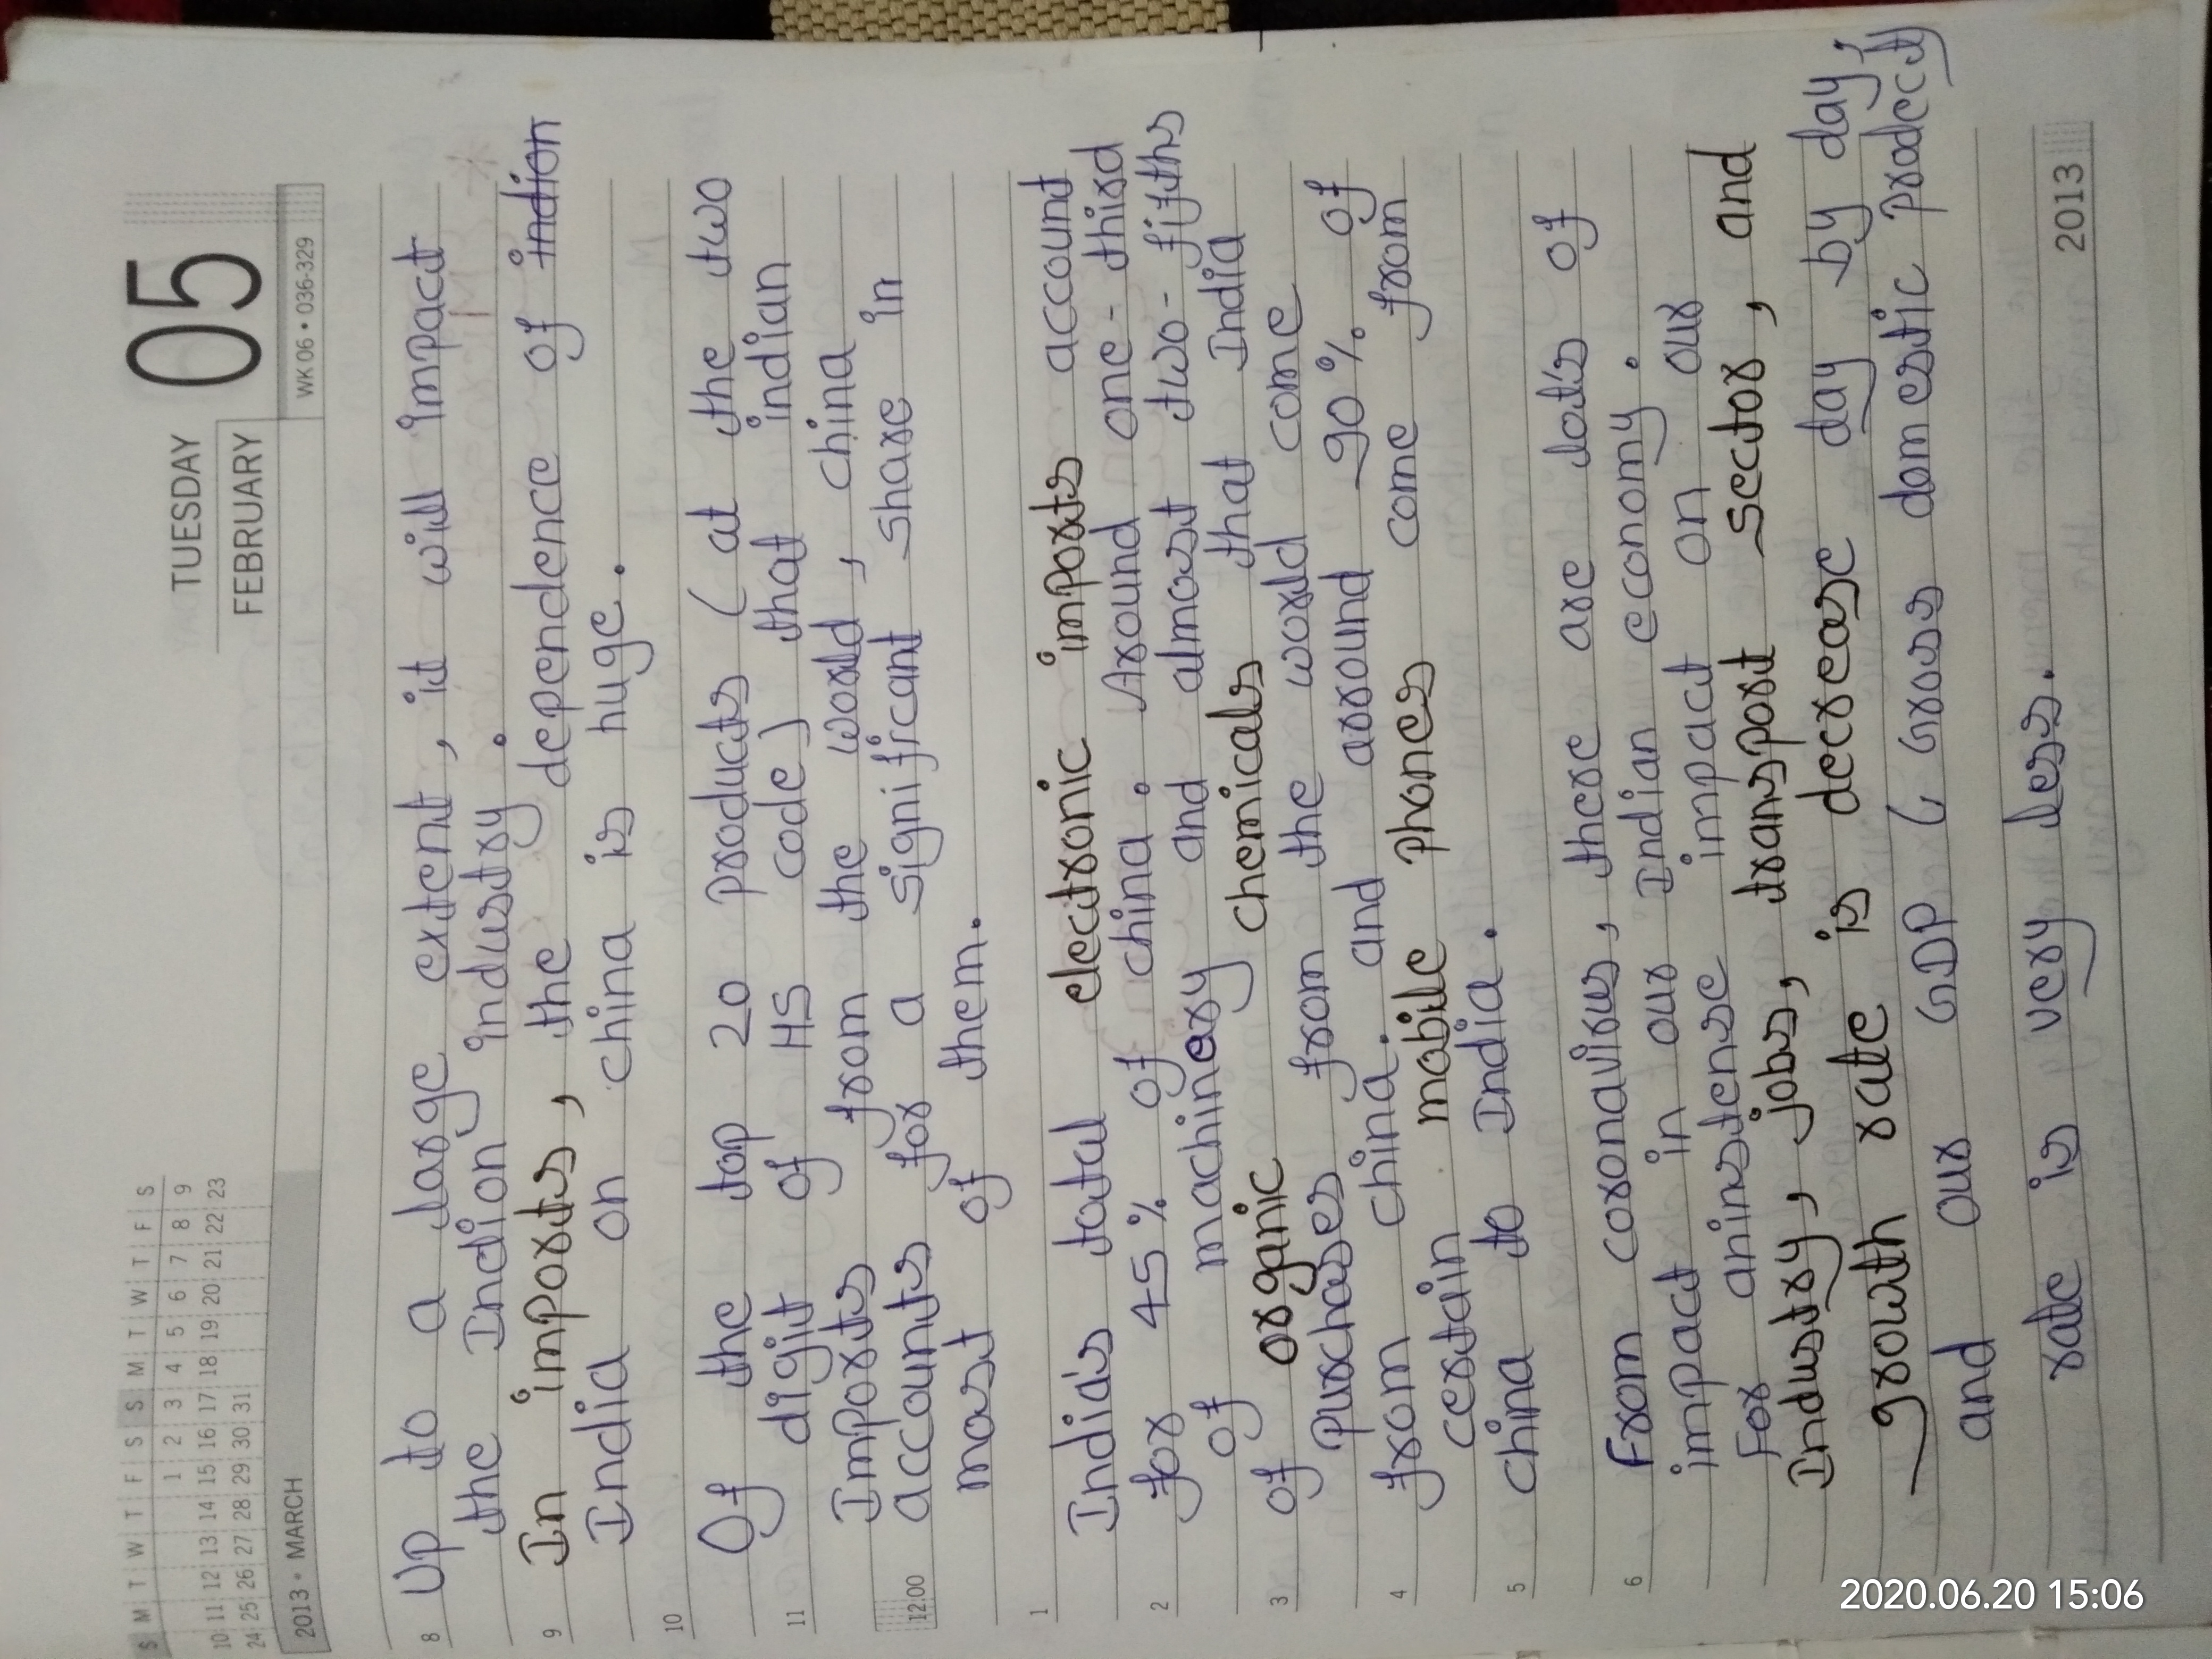 S M T W T F S S M T W T F S
1 2 3 4 5 6 7 8 9
10 11 12 13 14 15 16 17 18 19 20 21 22 23
24 25 26 27 28 29 30 31
2013 • MARCH
TUESDAY
FEBRUARY
05
WK 06 • 036-329
8 Up to a large extent, it will impact
the Indion industry.
9 In imports, the dependence of indion
India on china is huge.
10
Of the top 20 products ( at the two
11 digit of HS code) that indian
Imports from the world, china
12.00 accounts for a significant share in
most of them.
1
India's total electronic imports account
2 for 45% of china. Around one-third
of machinery and almost two-fifths
3 of organic chemicals that India
purchases from the world come
4 from china. and arround 90% of
certain mobile phones come from
5 china to India.
From coronavirus, there are lot's of
6 impact in our Indian economy.
For aninstense impact on our
Industry, jobs, transport sector, and
growth rate is decrease day by day,
and our GDP ( Gross domestic prodect)
rate is very less.
2013
2020.06.20 15:06